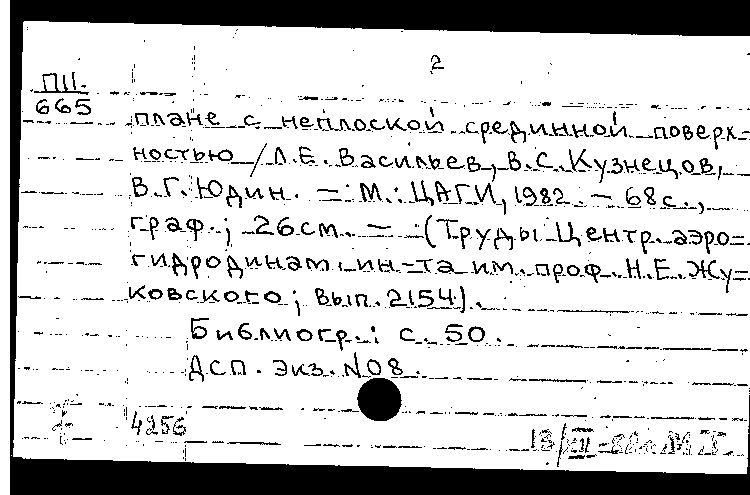 2
П11.
665
плане с неплоской срединной поверх=
ностью / Л.Е. Васильев, В.С. Кузнецов,
В.Г. Юдин. — М.: ЦАГИ, 1982. — 68с.,
граф.; 26см. — (Труды Центр. аэро=
гидродинам. ин-та им. проф. Н.Е. Жу=
ковского; Вып. 2154).
Библиогр.: с. 50.
ДСП. Экз. N08.
4256
13/III-